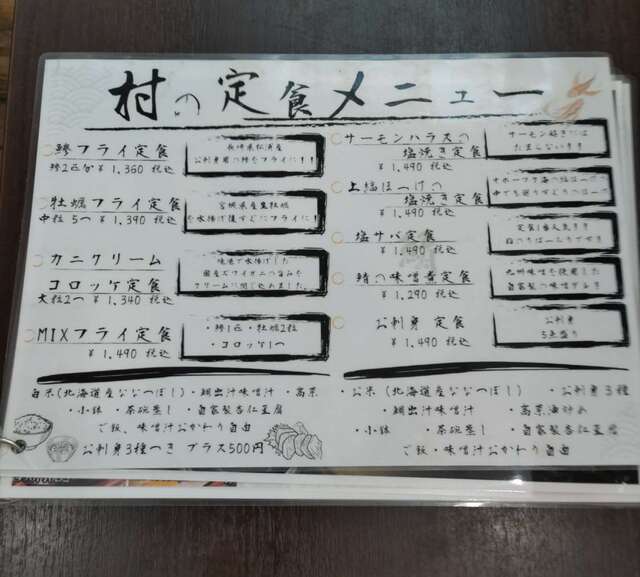 村の定食メニュー
鯵フライ定食
鯵2匹分 ¥1,360 税込
長崎県松浦産
お刺身用の鯵をフライに!!
牡蠣フライ定食
中粒5つ ¥1,390 税込
宮城県産生牡蠣
を水揚げ後すぐにフライに!
カニクリーム
コロッケ定食
大粒2つ ¥1,340 税込
境港で水揚げした
国産ズワイガニの旨みを
クリームに閉じ込めました。
MIXフライ定食
¥1,490 税込
・鯵1匹・牡蠣2粒
・コロッケ1つ
白米(北海道産ななつぼし)・鯛出汁味噌汁・高菜
・小鉢・茶碗蒸し・自家製杏仁豆腐
ご飯、味噌汁おかわり自由
お刺身3種つき プラス500円
サーモンハラスの
塩焼き定食
¥1,490 税込
サーモン好きには
たまらない!!
上縞ほっけの
塩焼き定食
¥1,490 税込
オホーツク海の
塩サバ定食
¥1,490 税込
定食1番人気!!
鯖の味噌煮定食
¥1,290 税込
九州味噌を使用した
自家製の味噌ダレ!
お刺身 定食
¥1,490 税込
お刺身
5点盛り
・お米(北海道産ななつぼし)・お刺身3種
・鯛出汁味噌汁・高菜油炒め
・小鉢・茶碗蒸し・自家製杏仁豆腐
ご飯・味噌汁おかわり自由